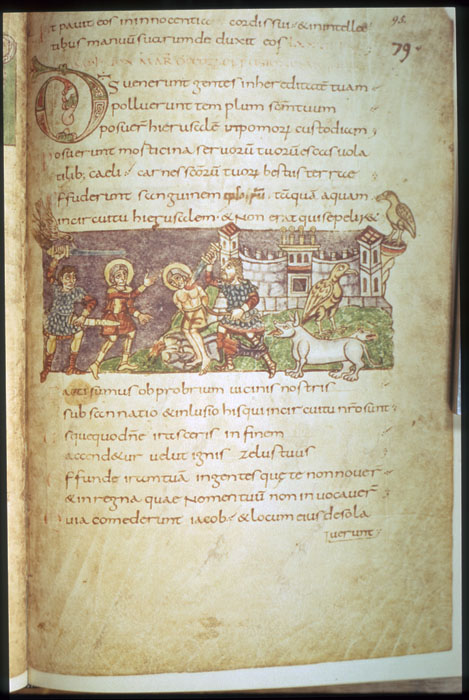 pavit eos in innocentia cordis sui & in intellec
tibus manuū suarum deduxit eos
95.
79.
DS venerunt gentes in hereditatē tuam
polluerunt templum scm̄ tuum
posuer̄ hierusalē ut pomorū custodium
osuerunt mosticina servorū tuorū escas vola
tilib; caeli carnes scōrū tuorū bestiis terrae
ffuderunt sanguinem tāquā aquam
incircuitu hierusalem & non erat qui sepelir&
acti sumus obprobrium vicinis nostris
subsannatio & inlusio his qui incircuitu nr̄o sunt
squequo dn̄e irasceris in finem
accend&ur velut ignis zelus tuus
ffunde iram tuā in gentes quę te non nover̄
& in regna quae nomen tuū non invocaver̄
uia comederunt iacob & locum eius desola
verunt